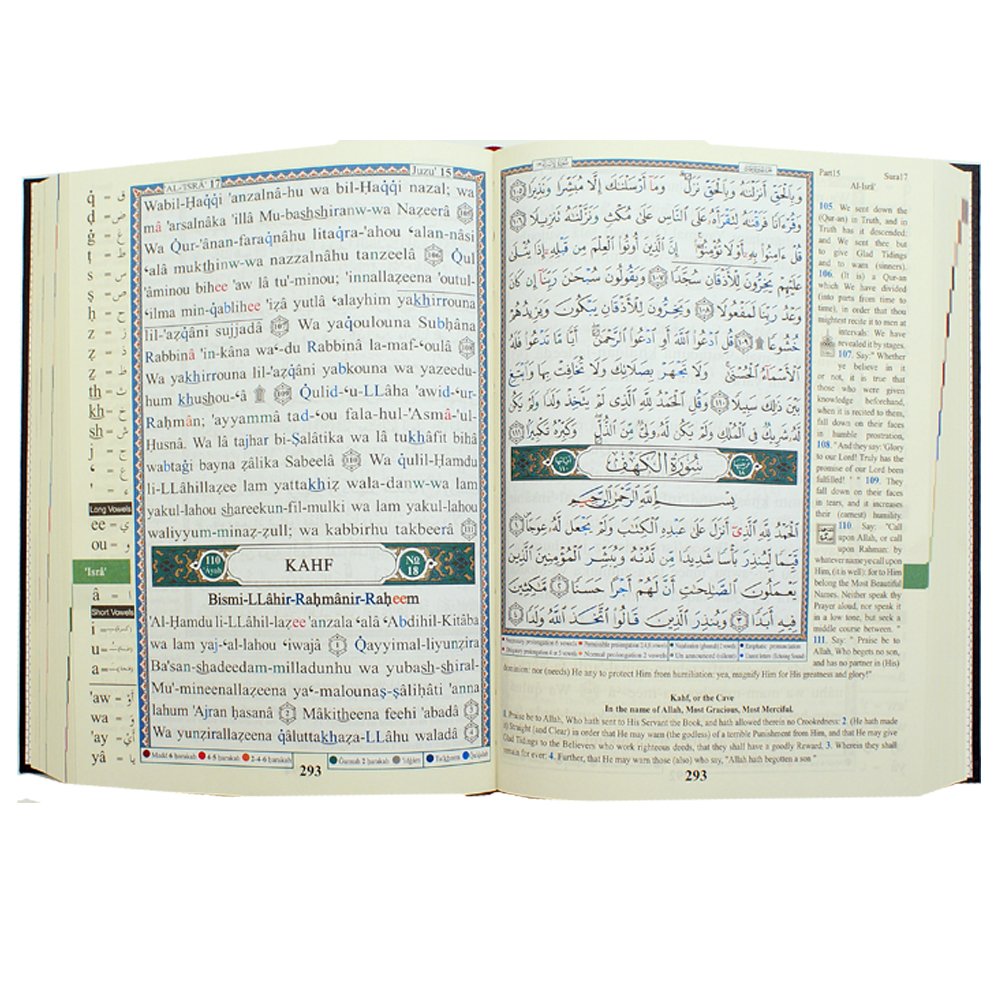 AL-'ISRÂ' 17
Juzu' 15
Wabil-Ḥaqqi 'anzalnâ-hu wa bil-Ḥaqqi nazal; wa
mâ 'arsalnâka 'illâ Mu-bashshiranw-wa Nazeerâ 105
Wa Qur-'ânan-faraqnâhu litaqra-'ahou ʻalan-nâsi
ʻalâ mukthinw-wa nazzalnâhu tanzeelâ 106 Qul
'âminou bihee 'aw lâ tu'-minou; 'innallaẓeena 'outul-
ʻilma min-qablihee 'iẓâ yutlâ ʻalayhim yakhirrouna
lil-'aẓqâni sujjadâ 107 Wa yaqoulouna Subḥâna
Rabbinâ 'in-kâna waʻ-du Rabbinâ la-maf-ʻoulâ 108
Wa yakhirrouna lil-'aẓqâni yabkouna wa yazeedu-
hum khushou-ʻâ 109 Qulid-ʻu-LLâha 'awid-ʻur-
Raḥmân; 'ayyammâ tad-ʻou fala-hul-'Asmâ-'ul-
Ḥusnâ. Wa lâ tajhar bi-Ṣalâtika wa lâ tukhâfit bihâ
wabtaġi bayna ẓâlika Sabeelâ 110 Wa qulil-Ḥamdu
li-LLâhillaẓee lam yattakhiẓ wala-danw-wa lam
yakul-lahou shareekun-fil-mulki wa lam yakul-lahou
waliyyum-minaẓ-ẓull; wa kabbirhu takbeerâ 111
110 Ayah
KAHF
No 18
Bismi-LLâhir-Raḥmânir-Raḥeem
'Al-Ḥamdu li-LLâhil-laẓee 'anzala ʻalâ ʻAbdihil-Kitâba
wa lam yaj-ʻal-lahou ʻiwajâ 1 Qayyimal-liyunẓira
Ba'san-shadeedam-milladunhu wa yubash-shiral-
Mu'-mineenallaẓeena yaʻ-malounaṣ-ṣâliḥâti 'anna
lahum 'Ajran ḥasanâ 2 Mâkitheena feehi 'abadâ 3
Wa yunẓirallaẓeena qâluttakhaẓa-LLâhu waladâ 4
Madd 6 ḥarakah 4-5 ḥarakah 2-4-6 ḥarakah Ġunnah 2 ḥarakah Tafkheem Qalqalah
293
q̇ = ق
ḍ = ض
ġ = غ
ṭ = ط
s = س
ṣ = ص
ḥ = ح
h = هـ
z = ز
ẓ = ظ
ẓ = ذ
th = ث
kh = خ
sh = ش
j = ج
ʻ = ع
' = ء
Long Vowels
ee = ي
ou = و
'Isrâ'
â = ا
Short Vowels
i =
u =
a =
'aw = أَوْ
wa = وَ
'ay = أَيْ
yâ = يا
وَبِالْحَقِّ أَنزَلْنَاهُ وَبِالْحَقِّ نَزَلَ وَمَا أَرْسَلْنَاكَ إِلَّا مُبَشِّرًا وَنَذِيرًا ١٠٥
وَقُرْءَانًا فَرَقْنَاهُ لِتَقْرَأَهُ عَلَى النَّاسِ عَلَىٰ مُكْثٍ وَنَزَّلْنَاهُ تَنزِيلًا ١٠٦
قُلْ ءَامِنُوا بِهِ أَوْ لَا تُؤْمِنُوا إِنَّ الَّذِينَ أُوتُوا الْعِلْمَ مِن قَبْلِهِ إِذَا يُتْلَىٰ
عَلَيْهِمْ يَخِرُّونَ لِلْأَذْقَانِ سُجَّدًا ١٠٧ وَيَقُولُونَ سُبْحَانَ رَبِّنَا إِن كَانَ
وَعْدُ رَبِّنَا لَمَفْعُولًا ١٠٨ وَيَخِرُّونَ لِلْأَذْقَانِ يَبْكُونَ وَيَزِيدُهُمْ
خُشُوعًا ۩ ١٠٩ قُلِ ادْعُوا اللَّهَ أَوِ ادْعُوا الرَّحْمَٰنَ أَيًّا مَّا تَدْعُوا فَلَهُ
الْأَسْمَاءُ الْحُسْنَىٰ وَلَا تَجْهَرْ بِصَلَاتِكَ وَلَا تُخَافِتْ بِهَا وَابْتَغِ
بَيْنَ ذَٰلِكَ سَبِيلًا ١١٠ وَقُلِ الْحَمْدُ لِلَّهِ الَّذِي لَمْ يَتَّخِذْ وَلَدًا وَلَمْ يَكُن
لَّهُ شَرِيكٌ فِي الْمُلْكِ وَلَمْ يَكُن لَّهُ وَلِيٌّ مِّنَ الذُّلِّ وَكَبِّرْهُ تَكْبِيرًا ١١١
سُورَةُ الْكَهْفِ
بِسْمِ اللَّهِ الرَّحْمَٰنِ الرَّحِيمِ
الْحَمْدُ لِلَّهِ الَّذِي أَنزَلَ عَلَىٰ عَبْدِهِ الْكِتَابَ وَلَمْ يَجْعَل لَّهُ عِوَجًا ١
قَيِّمًا لِّيُنذِرَ بَأْسًا شَدِيدًا مِّن لَّدُنْهُ وَيُبَشِّرَ الْمُؤْمِنِينَ الَّذِينَ
يَعْمَلُونَ الصَّالِحَاتِ أَنَّ لَهُمْ أَجْرًا حَسَنًا ٢ مَّاكِثِينَ
فِيهِ أَبَدًا ٣ وَيُنذِرَ الَّذِينَ قَالُوا اتَّخَذَ اللَّهُ وَلَدًا ٤
Necessary prolongation 6 vowels Permissible prolongation 2,4,6 vowels Nazalization (ghunnah) 2 vowels Emphatic pronounciation
Obligatory prolongation 4 or 5 vowels Normal prolongation 2 vowels Un announced (silent) Unrest letters (Echoing Sound)
Part15 Sura17
Al-Isrâ'
105. We sent down the
(Qur-an) in Truth, and in
Truth has it descended:
and We sent thee but
to give Glad Tidings
and to warn (sinners).
106. (It is) a Qur-an
which We have divided
(into parts from time to
time), in order that thou
mightest recite it to men at
intervals: We have
revealed it by stages.
107. Say:" Whether
ye believe in it
or not, it is true that
those who were given
knowledge beforehand,
when it is recited to them,
fall down on their faces
in humble prostration,
108. "And they say:'Glory
to our Lord! Truly has the
promise of our Lord been
fulfilled! ' " 109. They
fall down on their faces
in tears, and it increases
their (earnest) humility.
110. Say: "Call
upon Allah, or call
upon Rahman: by
whatever name ye call upon
Him, (it is well): for to Him
belong the Most Beautiful
Names. Neither speak thy
Prayer aloud, nor speak it
in a low tone, but seek a
middle course between. "
111. Say: " Praise be to
Allah, Who begets no son,
and has no partner in (His)
dominion: nor (needs) He any to protect Him from humiliation: yea, magnify Him for His greatness and glory!"
Kahf, or the Cave
In the name of Allah, Most Gracious, Most Merciful.
1. Praise be to Allah, Who hath sent to His Servant the Book, and hath allowed therein no Crookedness: 2. (He hath made
it) Straight (and Clear) in order that He may warn (the godless) of a terrible Punishment from Him, and that He may give
Glad Tidings to the Believers who work righteous deeds, that they shall have a goodly Reward. 3. Wherein they shall
remain for ever: 4. Further, that He may warn those (also) who say, "Allah hath begotten a son "
293